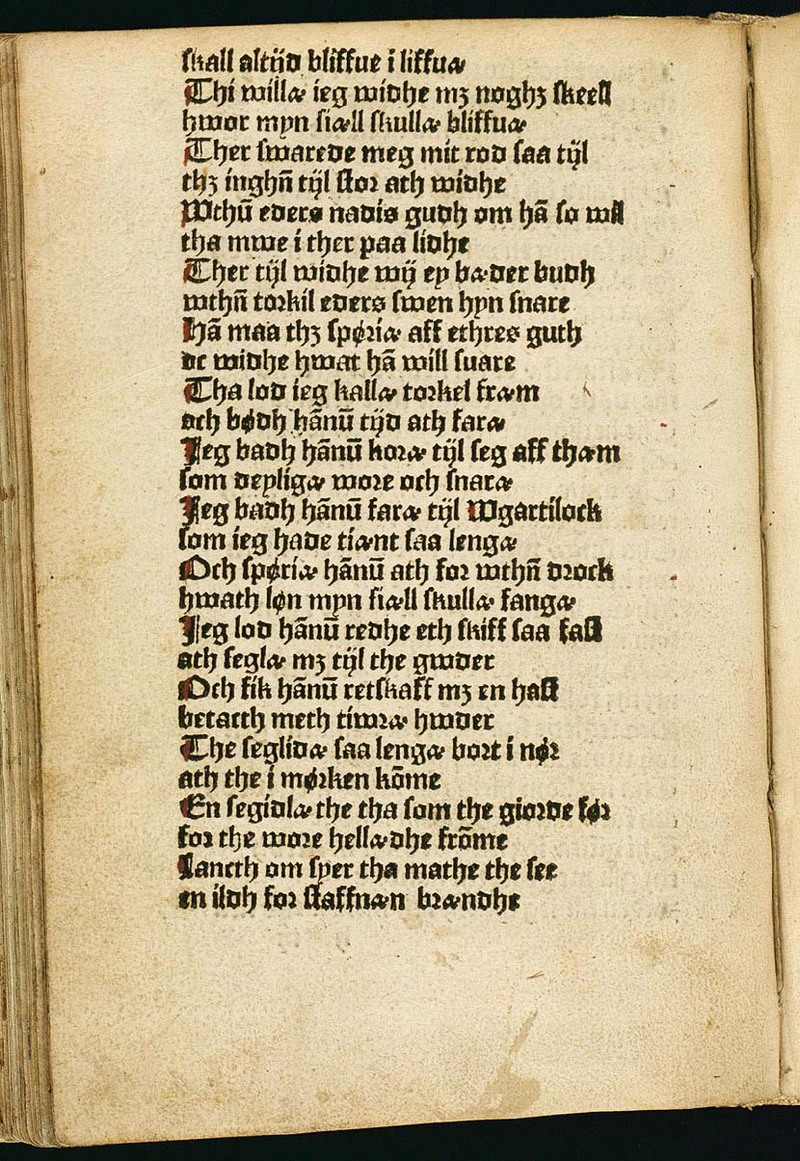 skall altijd bliffue i liffuæ
Thi willæ ieg widhe mꝫ noghꝫ skeell
hwor myn siæll skullæ bliffuæ
Ther swarede meg mit rod saa tijl
thꝫ inghn̄ tijl stor ath widhe
Wthū eders nadis gudh om hā so will
tha mwe i ther paa lidhe
Ther tijl widhe wij ey bæder budh
wthn̄ torkil eders swen hyn snare
Hā maa thꝫ spøriæ aff ethres guth
oc widhe hwat hā will suare
Tha lod ieg kallæ torkel fræm
och bødh hānū tijd ath faræ
Jeg badh hānū koræ tijl seg aff thæm
som deyligæ wore och snaræ
Jeg badh hānū faræ tijl Wgartilock
som ieg hade tiænt saa lengæ
Och spøriæ hānū ath for wthn̄ drock
hwath løn myn siæll skullæ fangæ
Jeg lod hānū redhe eth skiff saa fast
ath seglæ mꝫ tijl the gwder
Och fik hānū retskaff mꝫ en hast
betacth meth tiwræ hwder
The seglidæ saa lengæ bort i nør
ath the i mørken kōme
En segidlæ the tha som the giorde før
for the wore hellædhe frōme
Lancth om syer tha mathe the see
en ildh for staffnæn brændhe